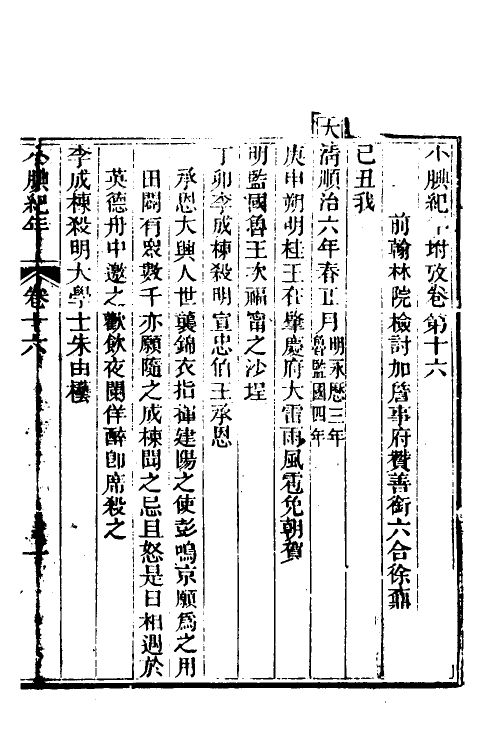 小腆紀年附攷卷第十六
前翰林院檢討加詹事府贊善銜六合徐鼒
己丑我
大清順治六年春正月明永曆三年魯監國四年
庚申朔明桂王在肇慶府大雷雨風雹免朝賀
明監國魯王次福甯之沙埕
丁卯李成棟殺明宣忠伯王承恩
承恩大興人世襲錦衣指揮建陽之使彭鳴京願爲之用
田闢有衆數千亦願隨之成棟聞之忌且怒是日相遇於
英德舟中邀之歡飲夜闌佯醉卽席殺之
李成棟殺明大學士朱由𣚴
小腆紀年 卷十六 一